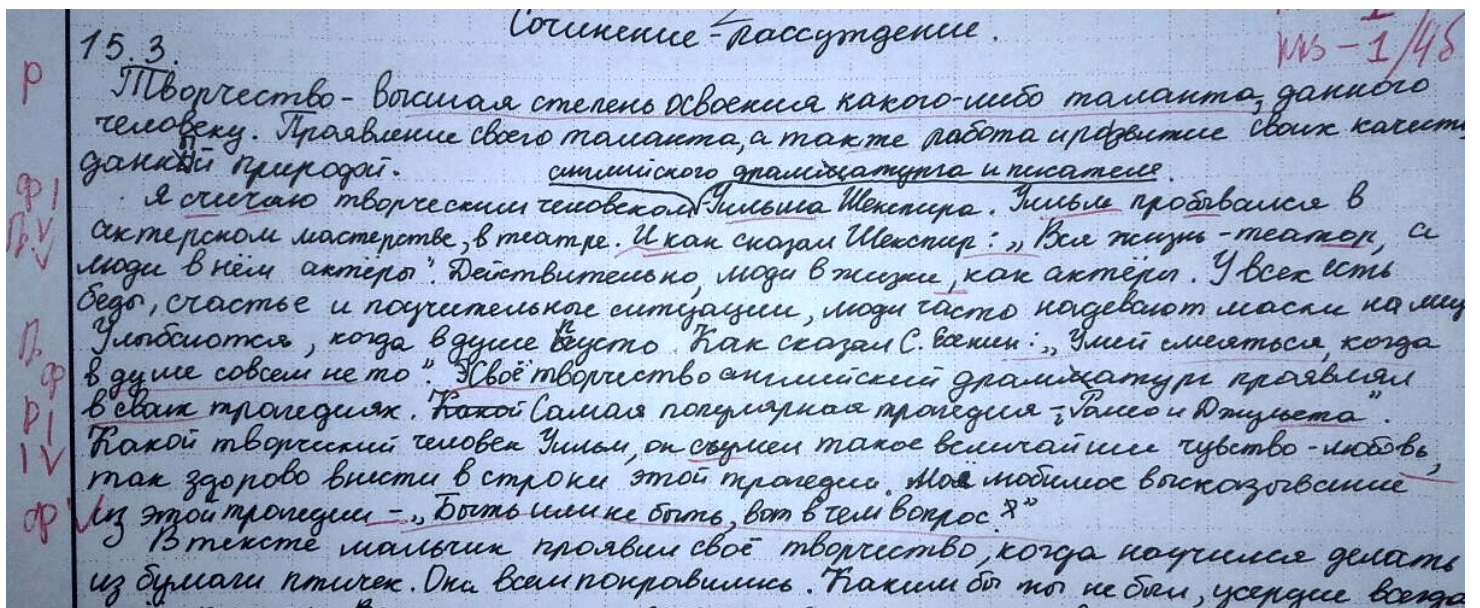 Сочинение-рассуждение.
КЗ - 1/4б
15.3.
Р Творчество - высшая степень освоения какого-либо таланта, данного
человеку. Проявление своего таланта, а также работа и развитие своих качеств
данный природой. английского драматурга и писателя.
Ф | Я считаю творческим человеком Уильяма Шекспира. Уильм пробывался в
П. V V актерском мастерстве, в театре. И как сказал Шекспир: „Вся жизнь - театор, а
люди в нём актёры". Действительно, люди в жизни, как актёры. У всех есть
беды, счастье и поучительные ситуации, люди часто надевают маски на лиц
П. Улыбаются, когда в душе пусто. Как сказал С. Есенин: „Умей смеяться, когда
ф в душе совсем не то". Своё творчество английский драматург проявлял
Р | в своих трагедиях. Какой Самая популярная трагедия - „Ромео и Джульета".
| V Какой творческий человек Уильм, он съумел такое величайшие чувство - любовь,
так здорово внести в строки этой трагедии. Моё любимое высказывание
ф из этой трагедии - „Быть или не быть, вот в чем вопрос"
В тексте мальчик проявил своё творчество, когда научился делать
из бумаги птичек. Они всем понравились. Каким бы ты не был, усердие всегда